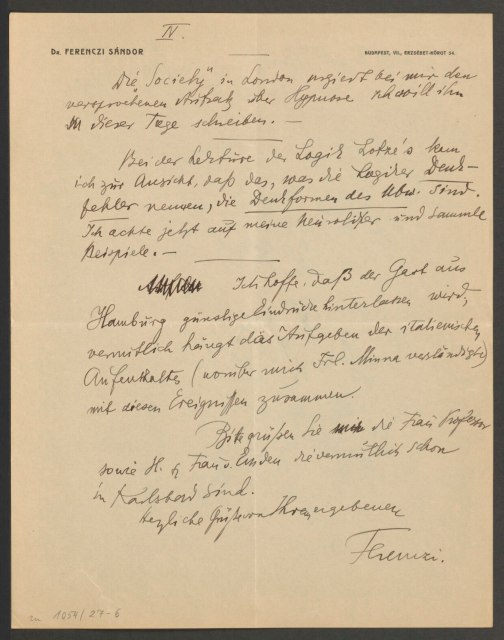 IV.
Dr. FERENCZI SÁNDOR
BUDAPEST, VII., ERZSÉBET-KÖRÚT 54.
„Die Society” in London urgiert bei mir den
versprochenen Aufsatz über Hypnose ich will ihn
in dieser Tage schreiben. —
Bei der Lektüre der Logik Lotze's kam
ich zur Ansicht, daß das, was die Logiker Denk-
fehler nennen, die Denkformen des Ubw. sind.
Ich achte jetzt auf meine Neurotiker und sammle
Beispiele. —
Ich hoffe, daß der Gast aus
Hamburg günstige Eindrücke hinterlassen wird,
vermutlich hängt das Aufgeben der italienischen
Aufenthaltes (worüber mich Frl. Minna verständigte)
mit diesen Ereignissen zusammen.
Bitte grüßen Sie die Frau Professor
sowie H. & Frau v. Emden die vermutlich schon
in Karlsbad sind.
Herzliche Grüße von Ihrem ergebenen
Ferenczi.
1054/27-6